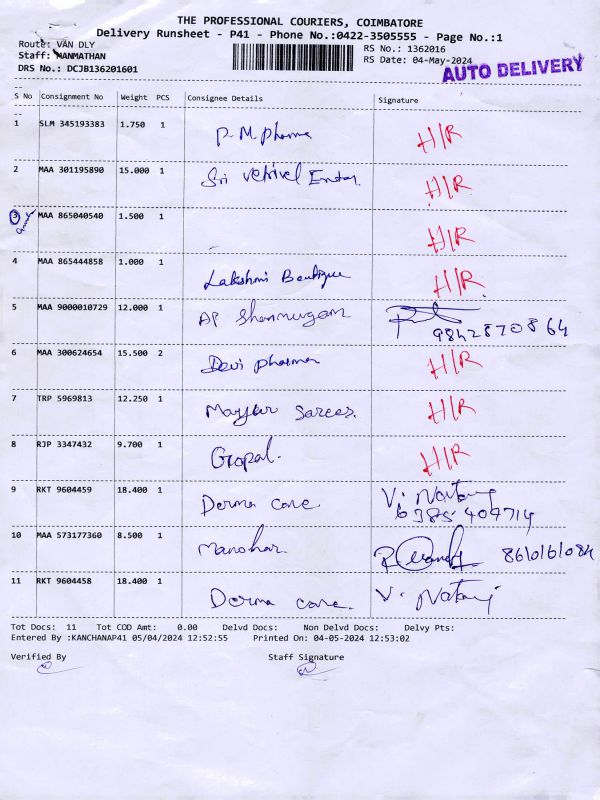 THE PROFESSIONAL COURIERS, COIMBATORE
Delivery Runsheet - P41 - Phone No.:0422-3505555 - Page No.:1
Route: VAN DLY RS No.: 1362016
Staff: MANMATHAN RS Date: 04-May-2024
DRS No.: DCJB136201601 AUTO DELIVERY
S No Consignment No Weight PCS Consignee Details Signature
1 SLM 345193383 1.750 1 P.M Pharma H/R
2 MAA 301195890 15.000 1 Sri Vetrivel Enter. H/R
3 MAA 865040540 1.500 1 H/R
4 MAA 865444858 1.000 1 Lakshmi Boutique H/R
5 MAA 9000010729 12.000 1 AP Shanmugam 9842870864
6 MAA 300624654 15.500 2 Devi pharma H/R
7 TRP 5969813 12.250 1 Mayur Sarees. H/R
8 RJP 3347432 9.700 1 Gopal. H/R
9 RKT 9604459 18.400 1 Derma care V. Nataraj
6385409714
10 MAA 573177360 8.500 1 Manohar. 8610161084
11 RKT 9604458 18.400 1 Derma care. V. Nataraj
Tot Docs: 11 Tot COD Amt: 0.00 Delvd Docs: Non Delvd Docs: Delvy Pts:
Entered By :KANCHANAP41 05/04/2024 12:52:55 Printed On: 04-05-2024 12:53:02
Verified By Staff Signature